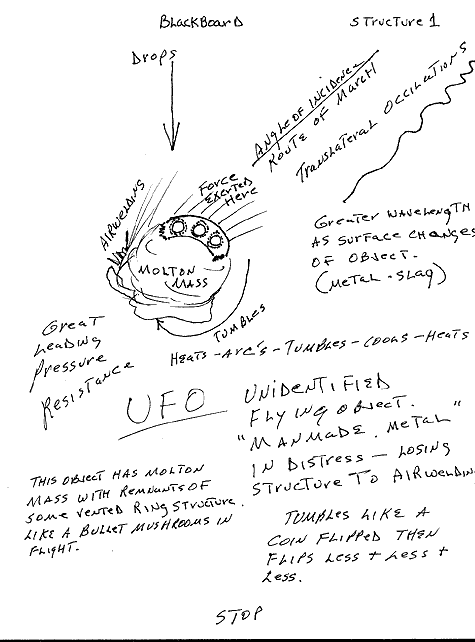 BlackBoard
Structure 1
Drops
Angle of Incidence
Route of March
Translateral Occilations
Airwelding
Force
Exerted
Here
Greater wavelength
as surface changes
of object.
(metal-slag)
Molton
Mass
Tumbles
Great
Leading
Pressure
Resistance
Heats-Arc's-Tumbles-Cools-Heats
UFO
Unidentified
Flying Object.
"Manmade. Metal"
in distress - losing
structure to Airwelding
This object has molton
mass with remnants of
some vented ring structure.
Like a bullet mushrooms in
flight.
Tumbles like a
coin flipped then
flips less + less +
less.
STOP